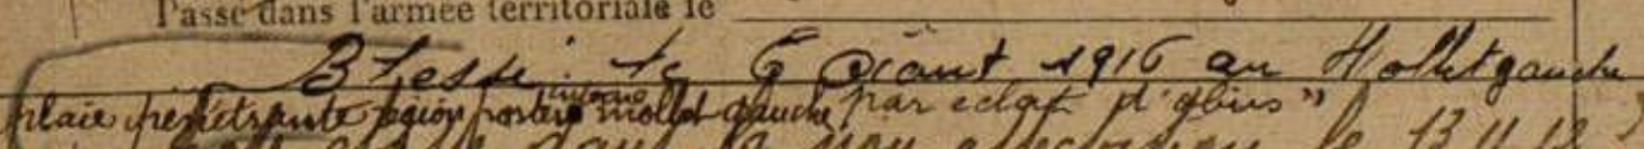 Passé dans l'armée territoriale le
Blessé le 6 Août 1916 au Mollet gauche
plaie pénétrante région postero interne mollet gauche par eclat d'obus"
le 13